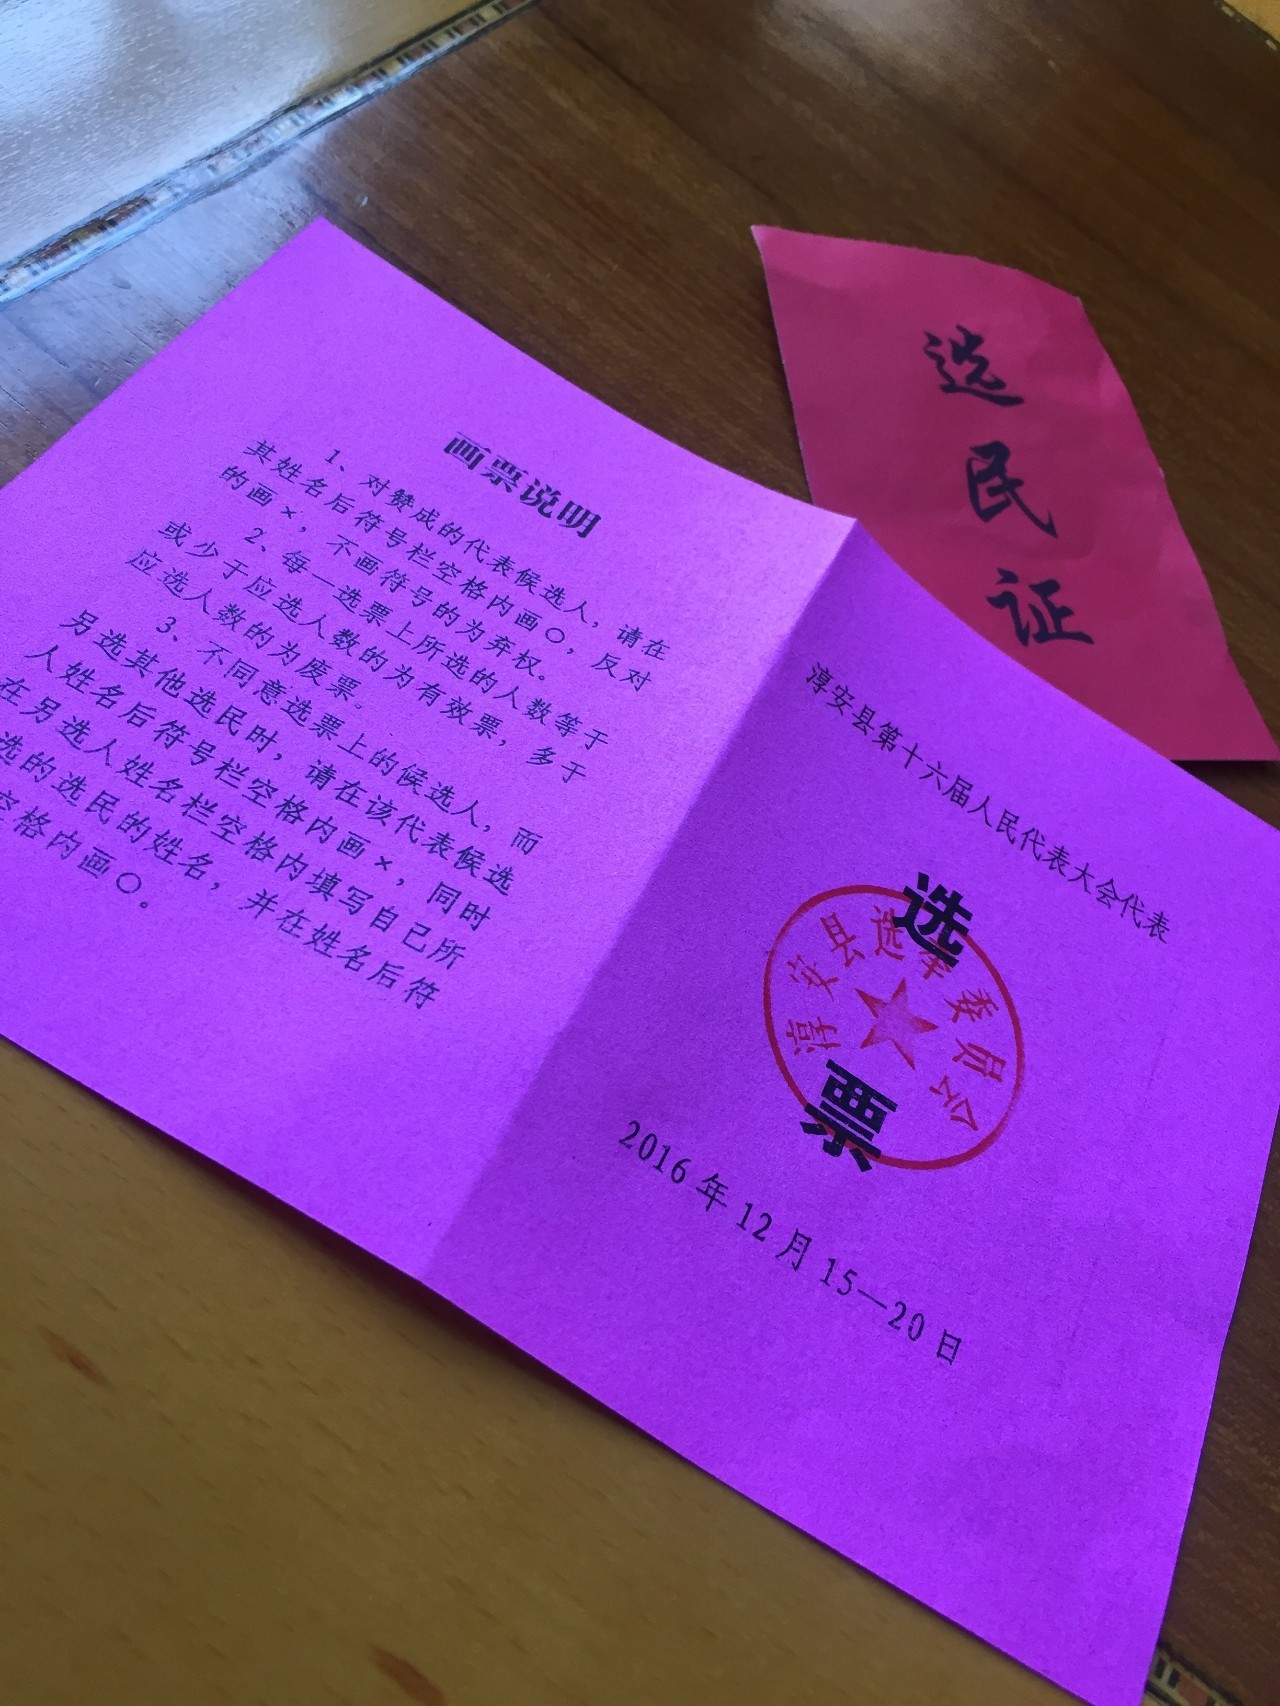 画票说明
1、对赞成的代表候选人，请在
其姓名后符号栏空格内画○，反对
的画×，不画符号的为弃权。
2、每一选票上所选的人数等于
或少于应选人数的为有效票，多于
应选人数的为废票。
3、不同意选票上的候选人，而
另选其他选民时，请在该代表候选
人姓名后符号栏空格内画×，同时
在另选人姓名栏空格内填写自己所
选的选民的姓名，并在姓名后符
空格内画○。
淳安县第十六届人民代表大会代表
选
票
淳安县选举委员会
2016年12月15—20日
选
民
证